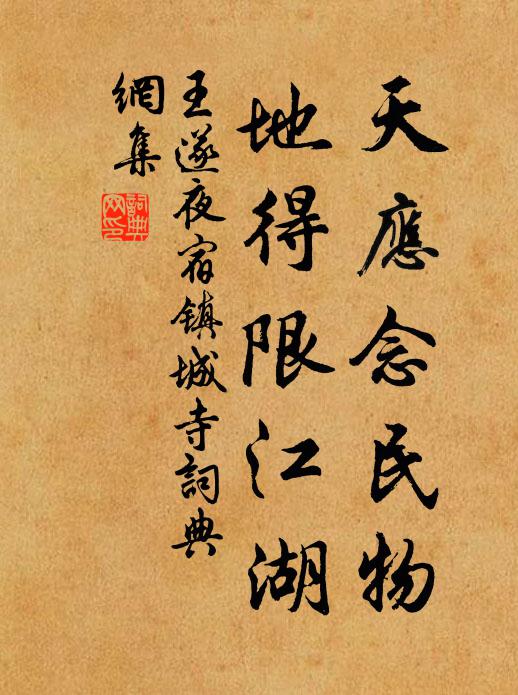 天應念民物
地得限江湖
王遂夜宿鎮城寺詞典
網集
詞典
网印